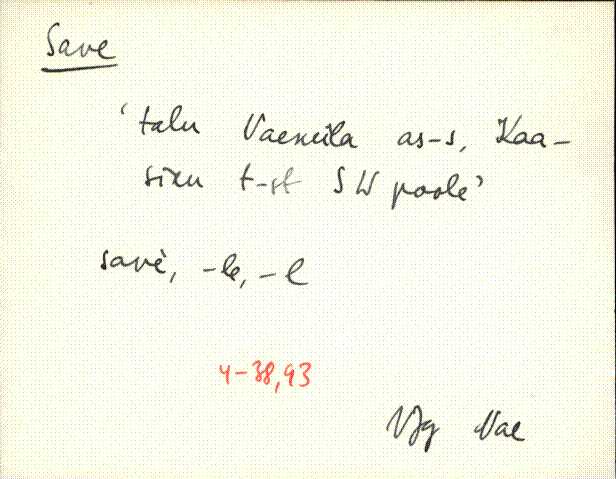 Save
‘talu Vaeküla as-s, Kaa-
siku t-st SW poole’
savè, -le, -l
4-38,93
VJg Vae